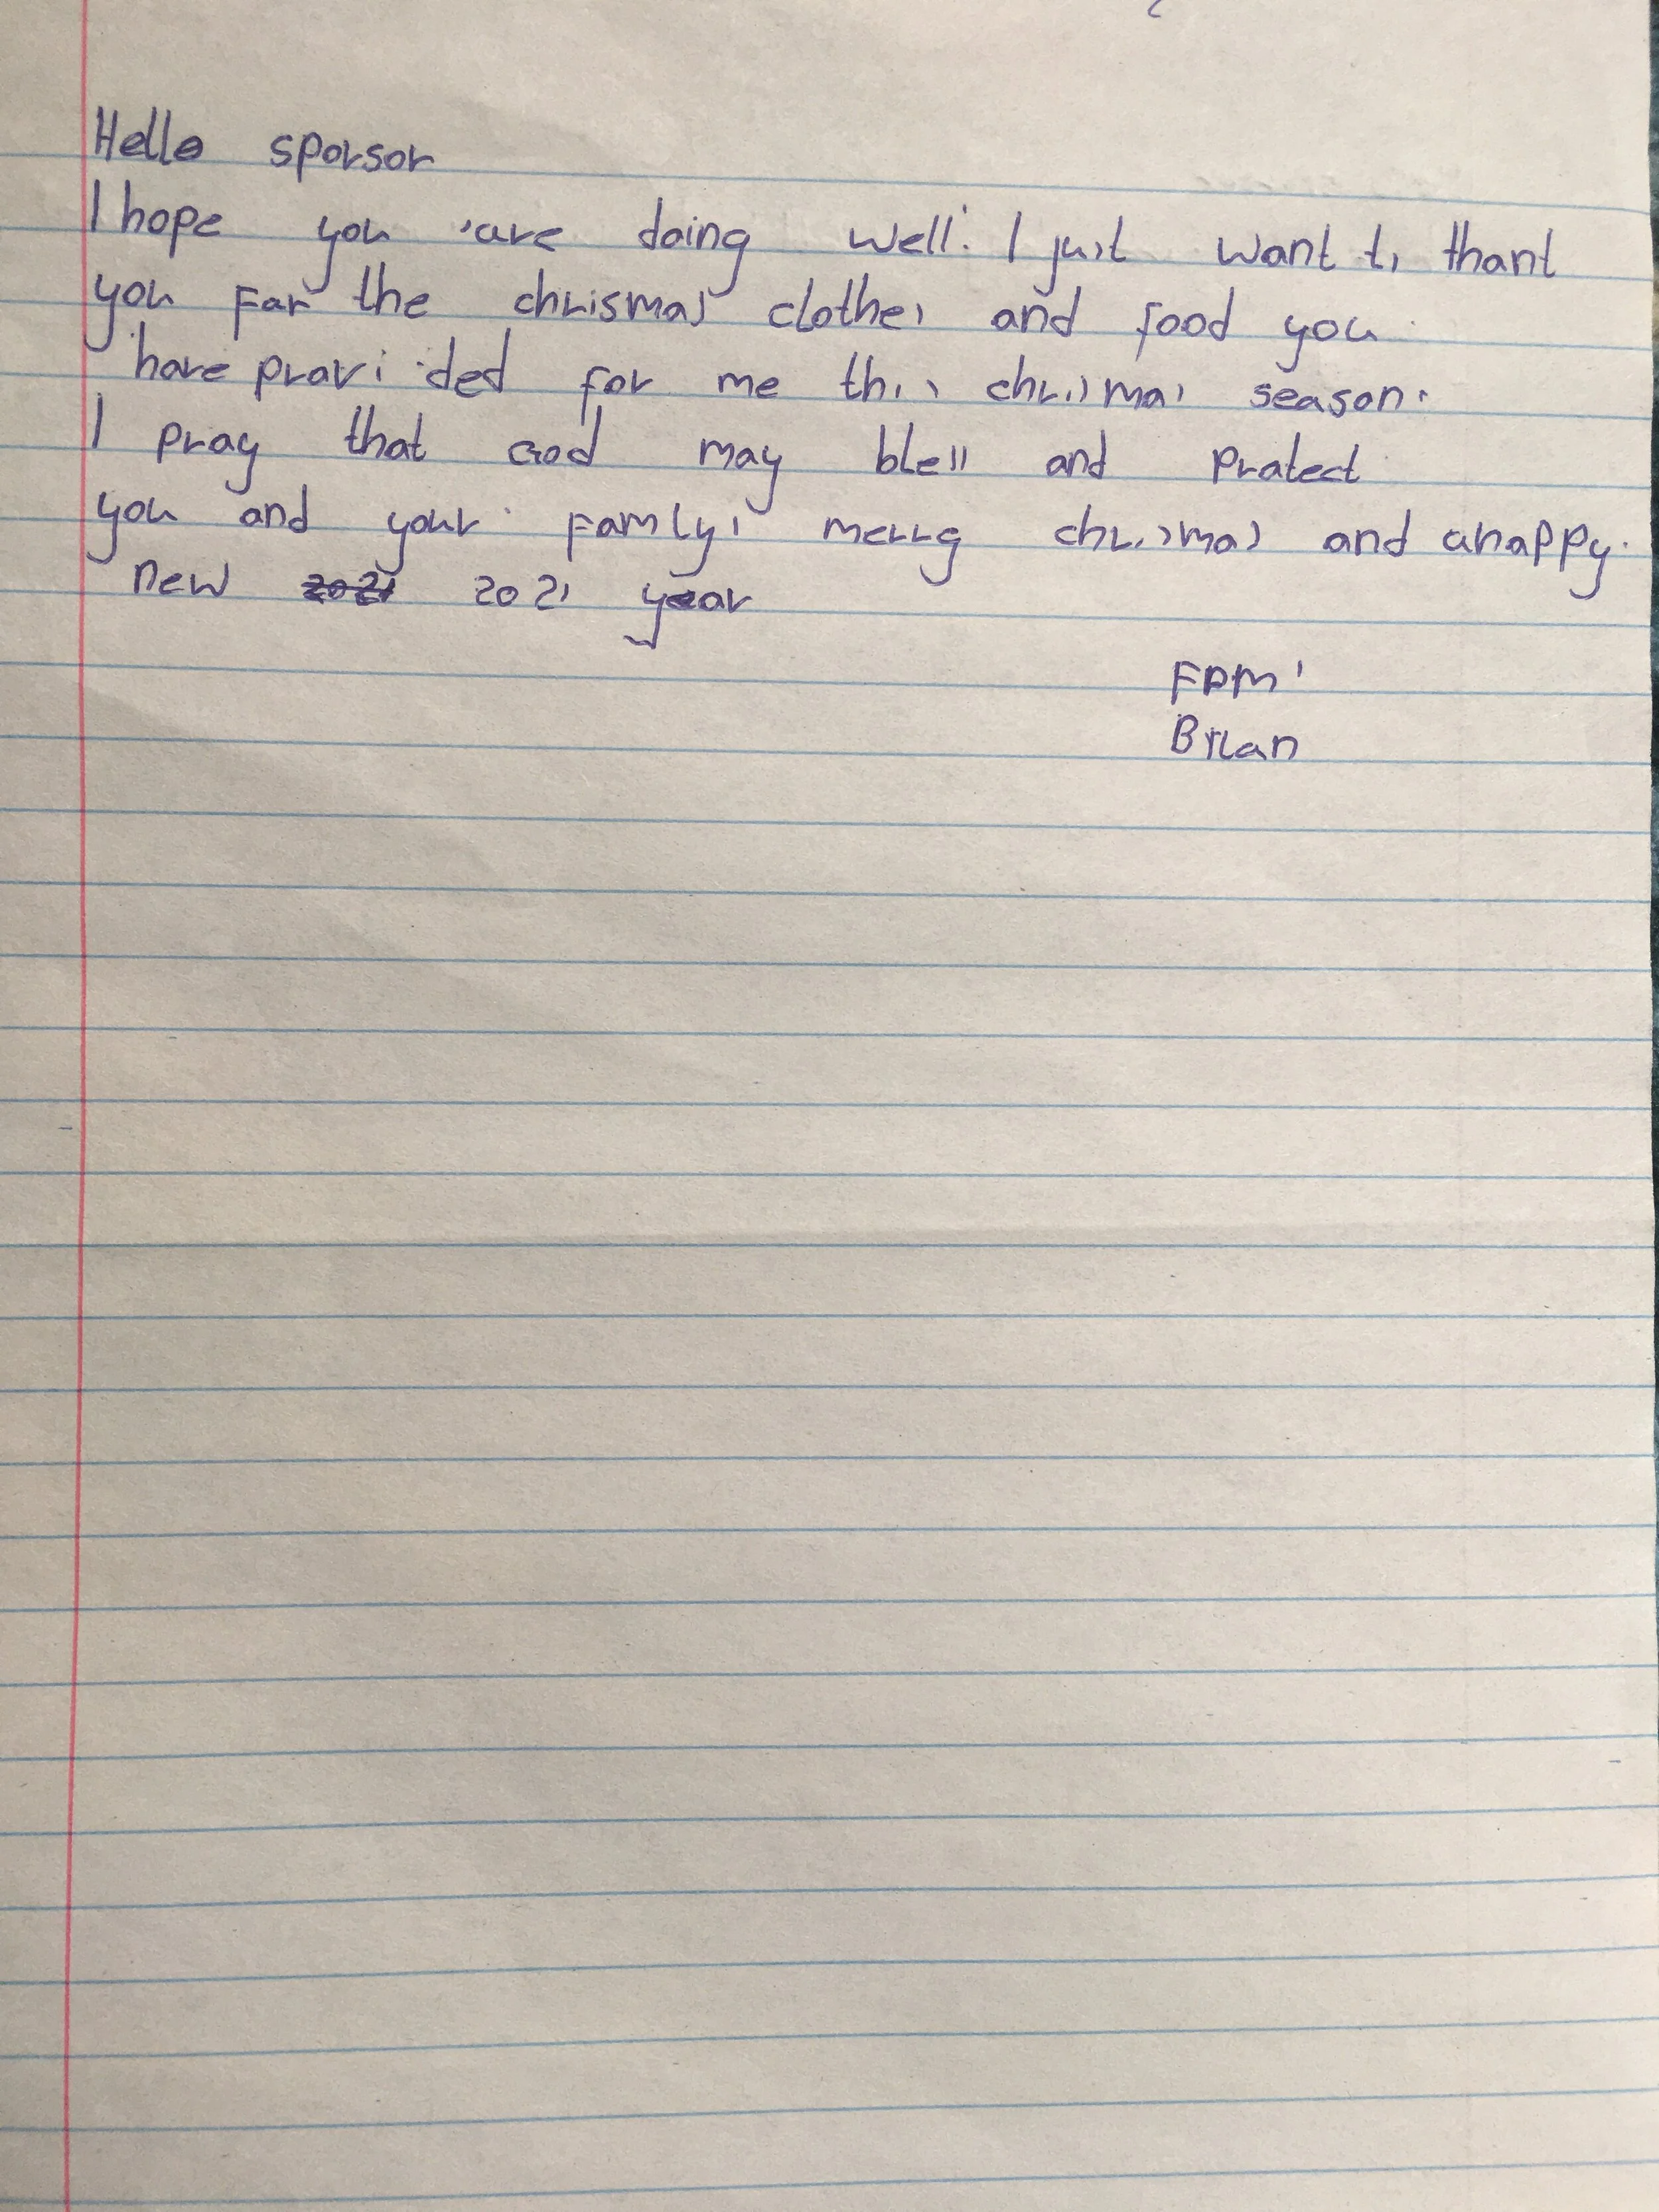 Hello sponsor
I hope you are doing well. I just want to thank
you for the chrismas clothes and food you
have provided for me this chrismas season.
I pray that God may bless and protect
you and your famly. merry chrismas and ahappy
new 2021 2021 year
From
Brian